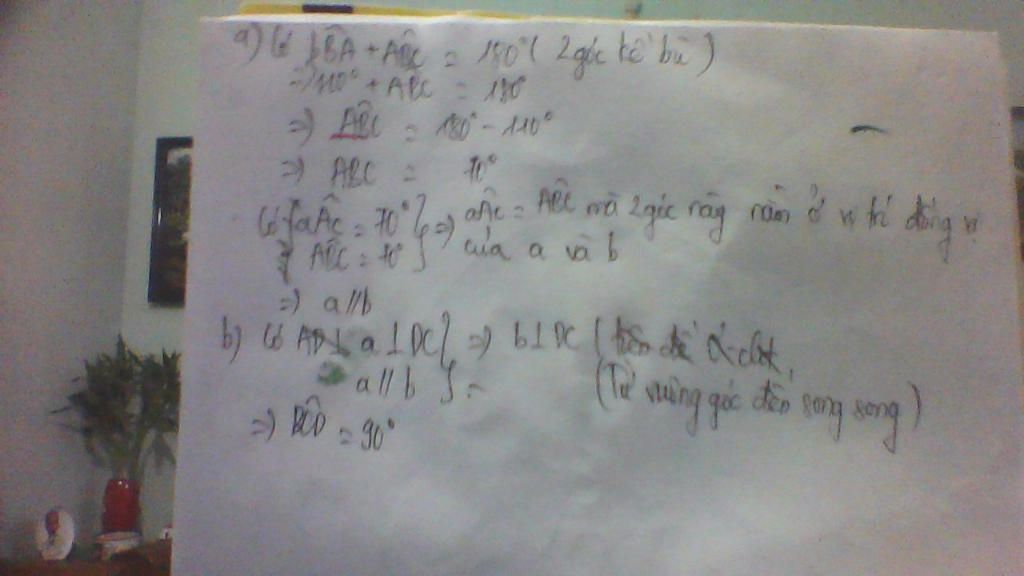 a) Có bB̂A + AB̂C = 180° ( 2 góc kề bù )
=> 110° + ABC = 180°
=> AB̂C = 180° - 110°
=> ABC = 70°
Có { aÂc = 70° } => aÂc = AB̂C mà 2 góc này nằm ở vị trí đồng vị
AB̂C = 70° } của a và b
=> a // b
b) Có a ⊥ DC } => b ⊥ DC (
a // b } = (Từ vuông góc đến song song )
=> BĈD = 90°